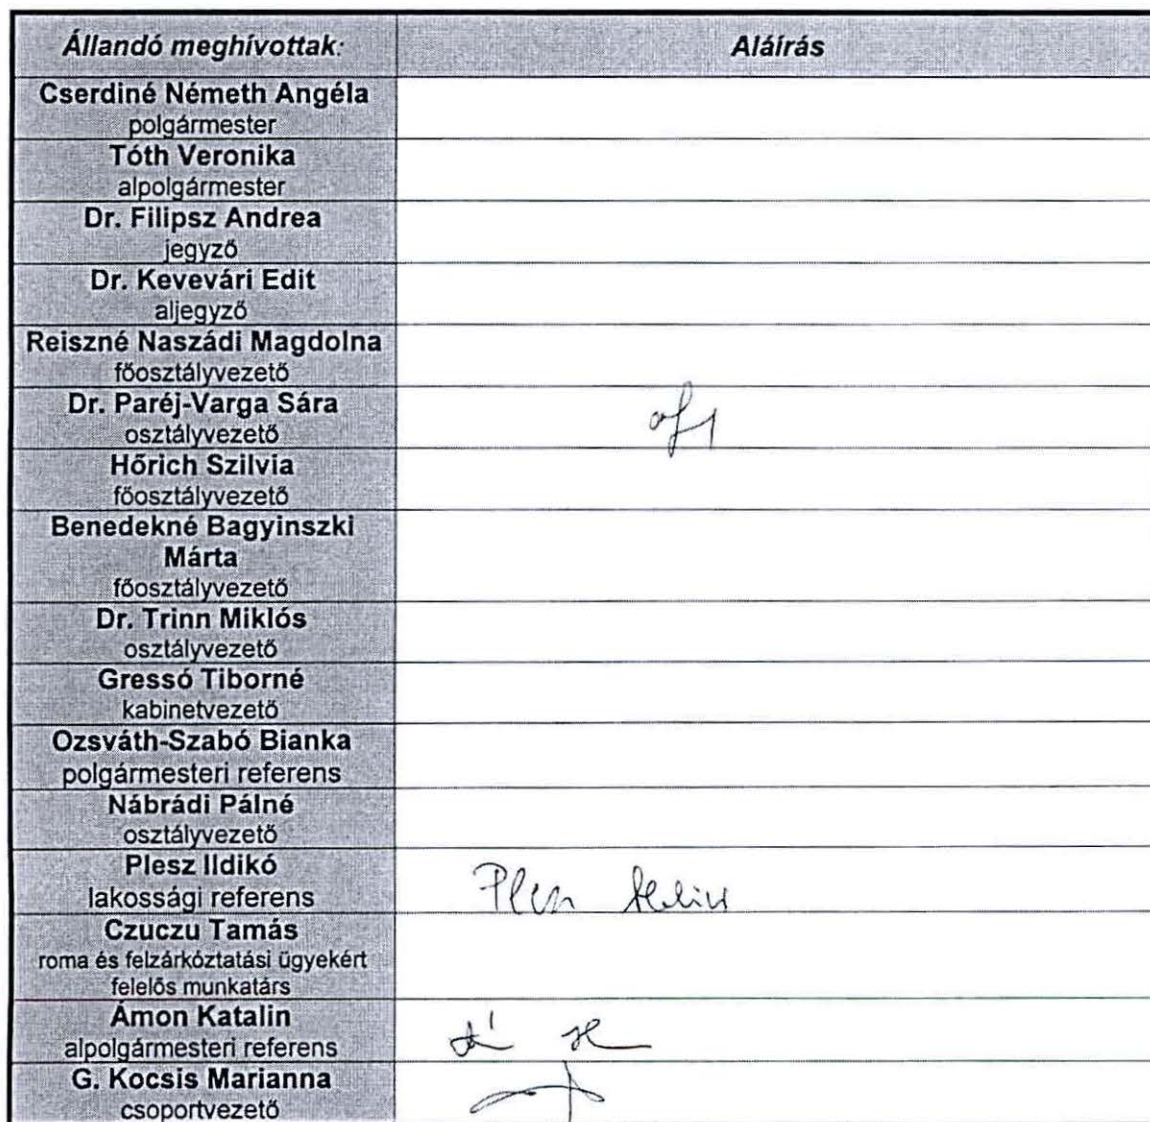 Állandó meghívottak:
Aláírás
Cserdiné Németh Angéla
polgármester
Tóth Veronika
alpolgármester
Dr. Filipsz Andrea
jegyző
Dr. Kevevári Edit
aljegyző
Reiszné Naszádi Magdolna
főosztályvezető
Dr. Paréj-Varga Sára
osztályvezető
Hőrich Szilvia
főosztályvezető
Benedekné Bagyinszki
Márta
főosztályvezető
Dr. Trinn Miklós
osztályvezető
Gressó Tiborné
kabinetvezető
Ozsváth-Szabó Bianka
polgármesteri referens
Nábrádi Pálné
osztályvezető
Plesz Ildikó
lakossági referens
Czuczu Tamás
roma és felzárkóztatási ügyekért
felelős munkatárs
Ámon Katalin
alpolgármesteri referens
G. Kocsis Marianna
csoportvezető